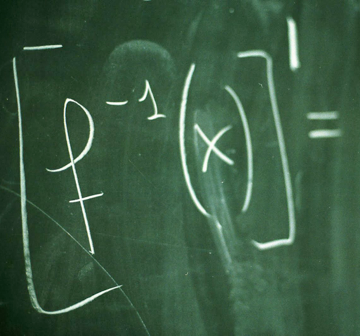 [f⁻¹(x)]' =